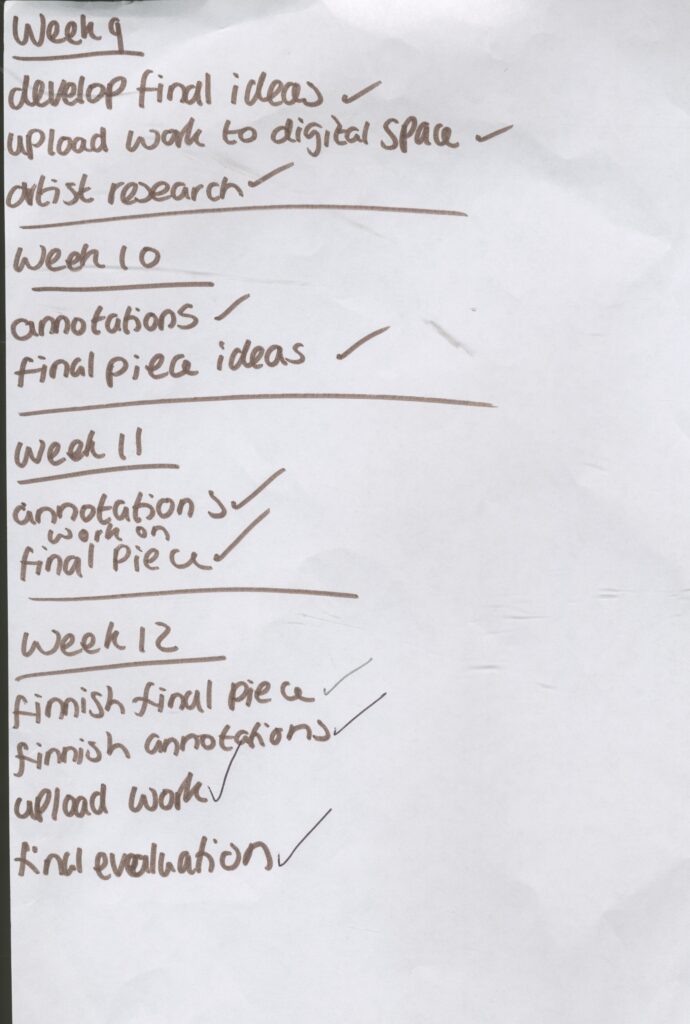 Week 9
develop final ideas ✓
upload work to digital space ✓
artist research ✓
Week 10
annotations ✓
final piece ideas ✓
Week 11
annotations ✓
work on
final piece ✓
Week 12
finnish final piece ✓
finnish annotations ✓
upload work ✓
final evaluation ✓